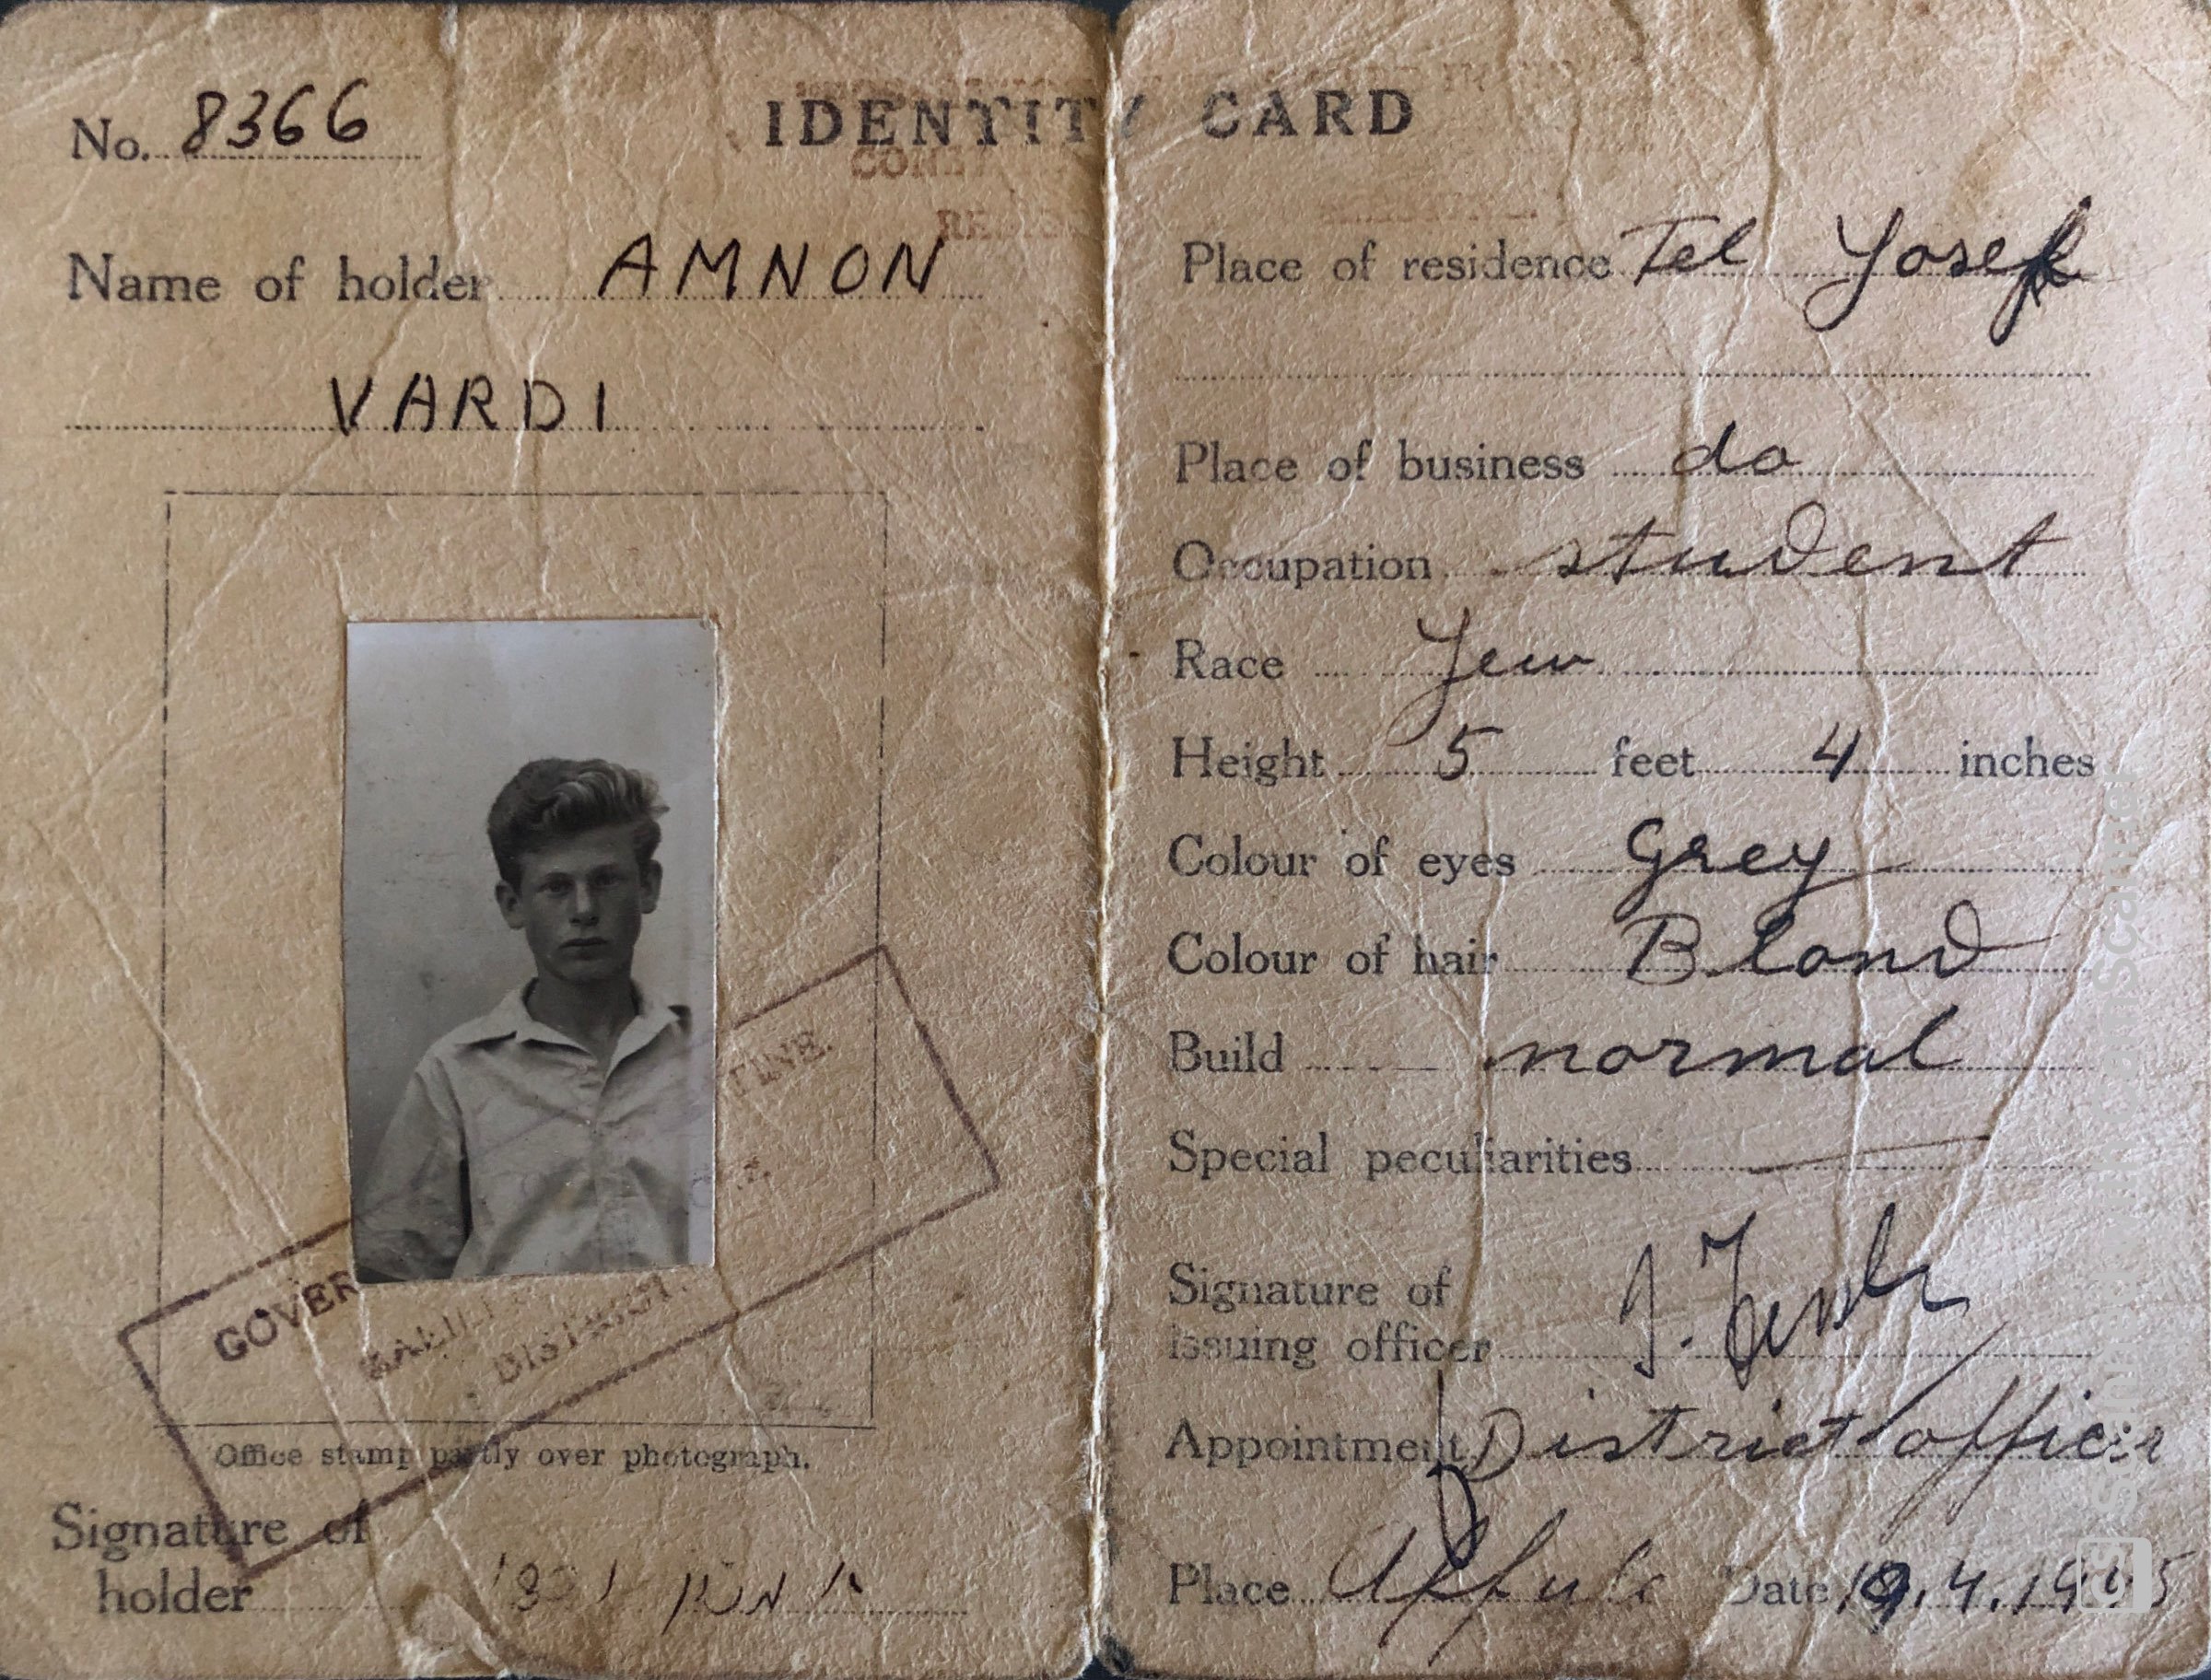 No. 8366
IDENTITY CARD
Name of holder AMNON
VARDI
Office stamp partly over photograph.
GOVER
TINE.
DISTRICT.
Signature of
holder אמנון ורדי
Place of residence Tel Yosef
Place of business do
Occupation student
Race Jew
Height 5 feet 4 inches
Colour of eyes Grey
Colour of hair Blond
Build normal
Special peculiarities
Signature of
issuing officer
Appointment District officer
Place Affula Date
CamScanner